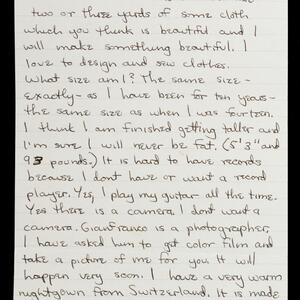 two or three yards of some cloth
which you think is beautiful and I
will make something beautiful. I
love to design and sew clothes.
What size am I? The same size-
exactly-as I have been for ten years-
the same size as when I was fourteen.
I think I am finished getting taller and
I'm sure I will never be fat. (5'3" and
93 pounds.) It is hard to have records
because I dont have or want a record
player. Yes, I play my guitar all the time.
Yes there is a camera. I dont want a
camera. Gianfranco is a photographer,
I have asked him to get color film and
take a picture of me for you It will
happen very soon. I have a very warm
nightgown from Switzerland. It is made